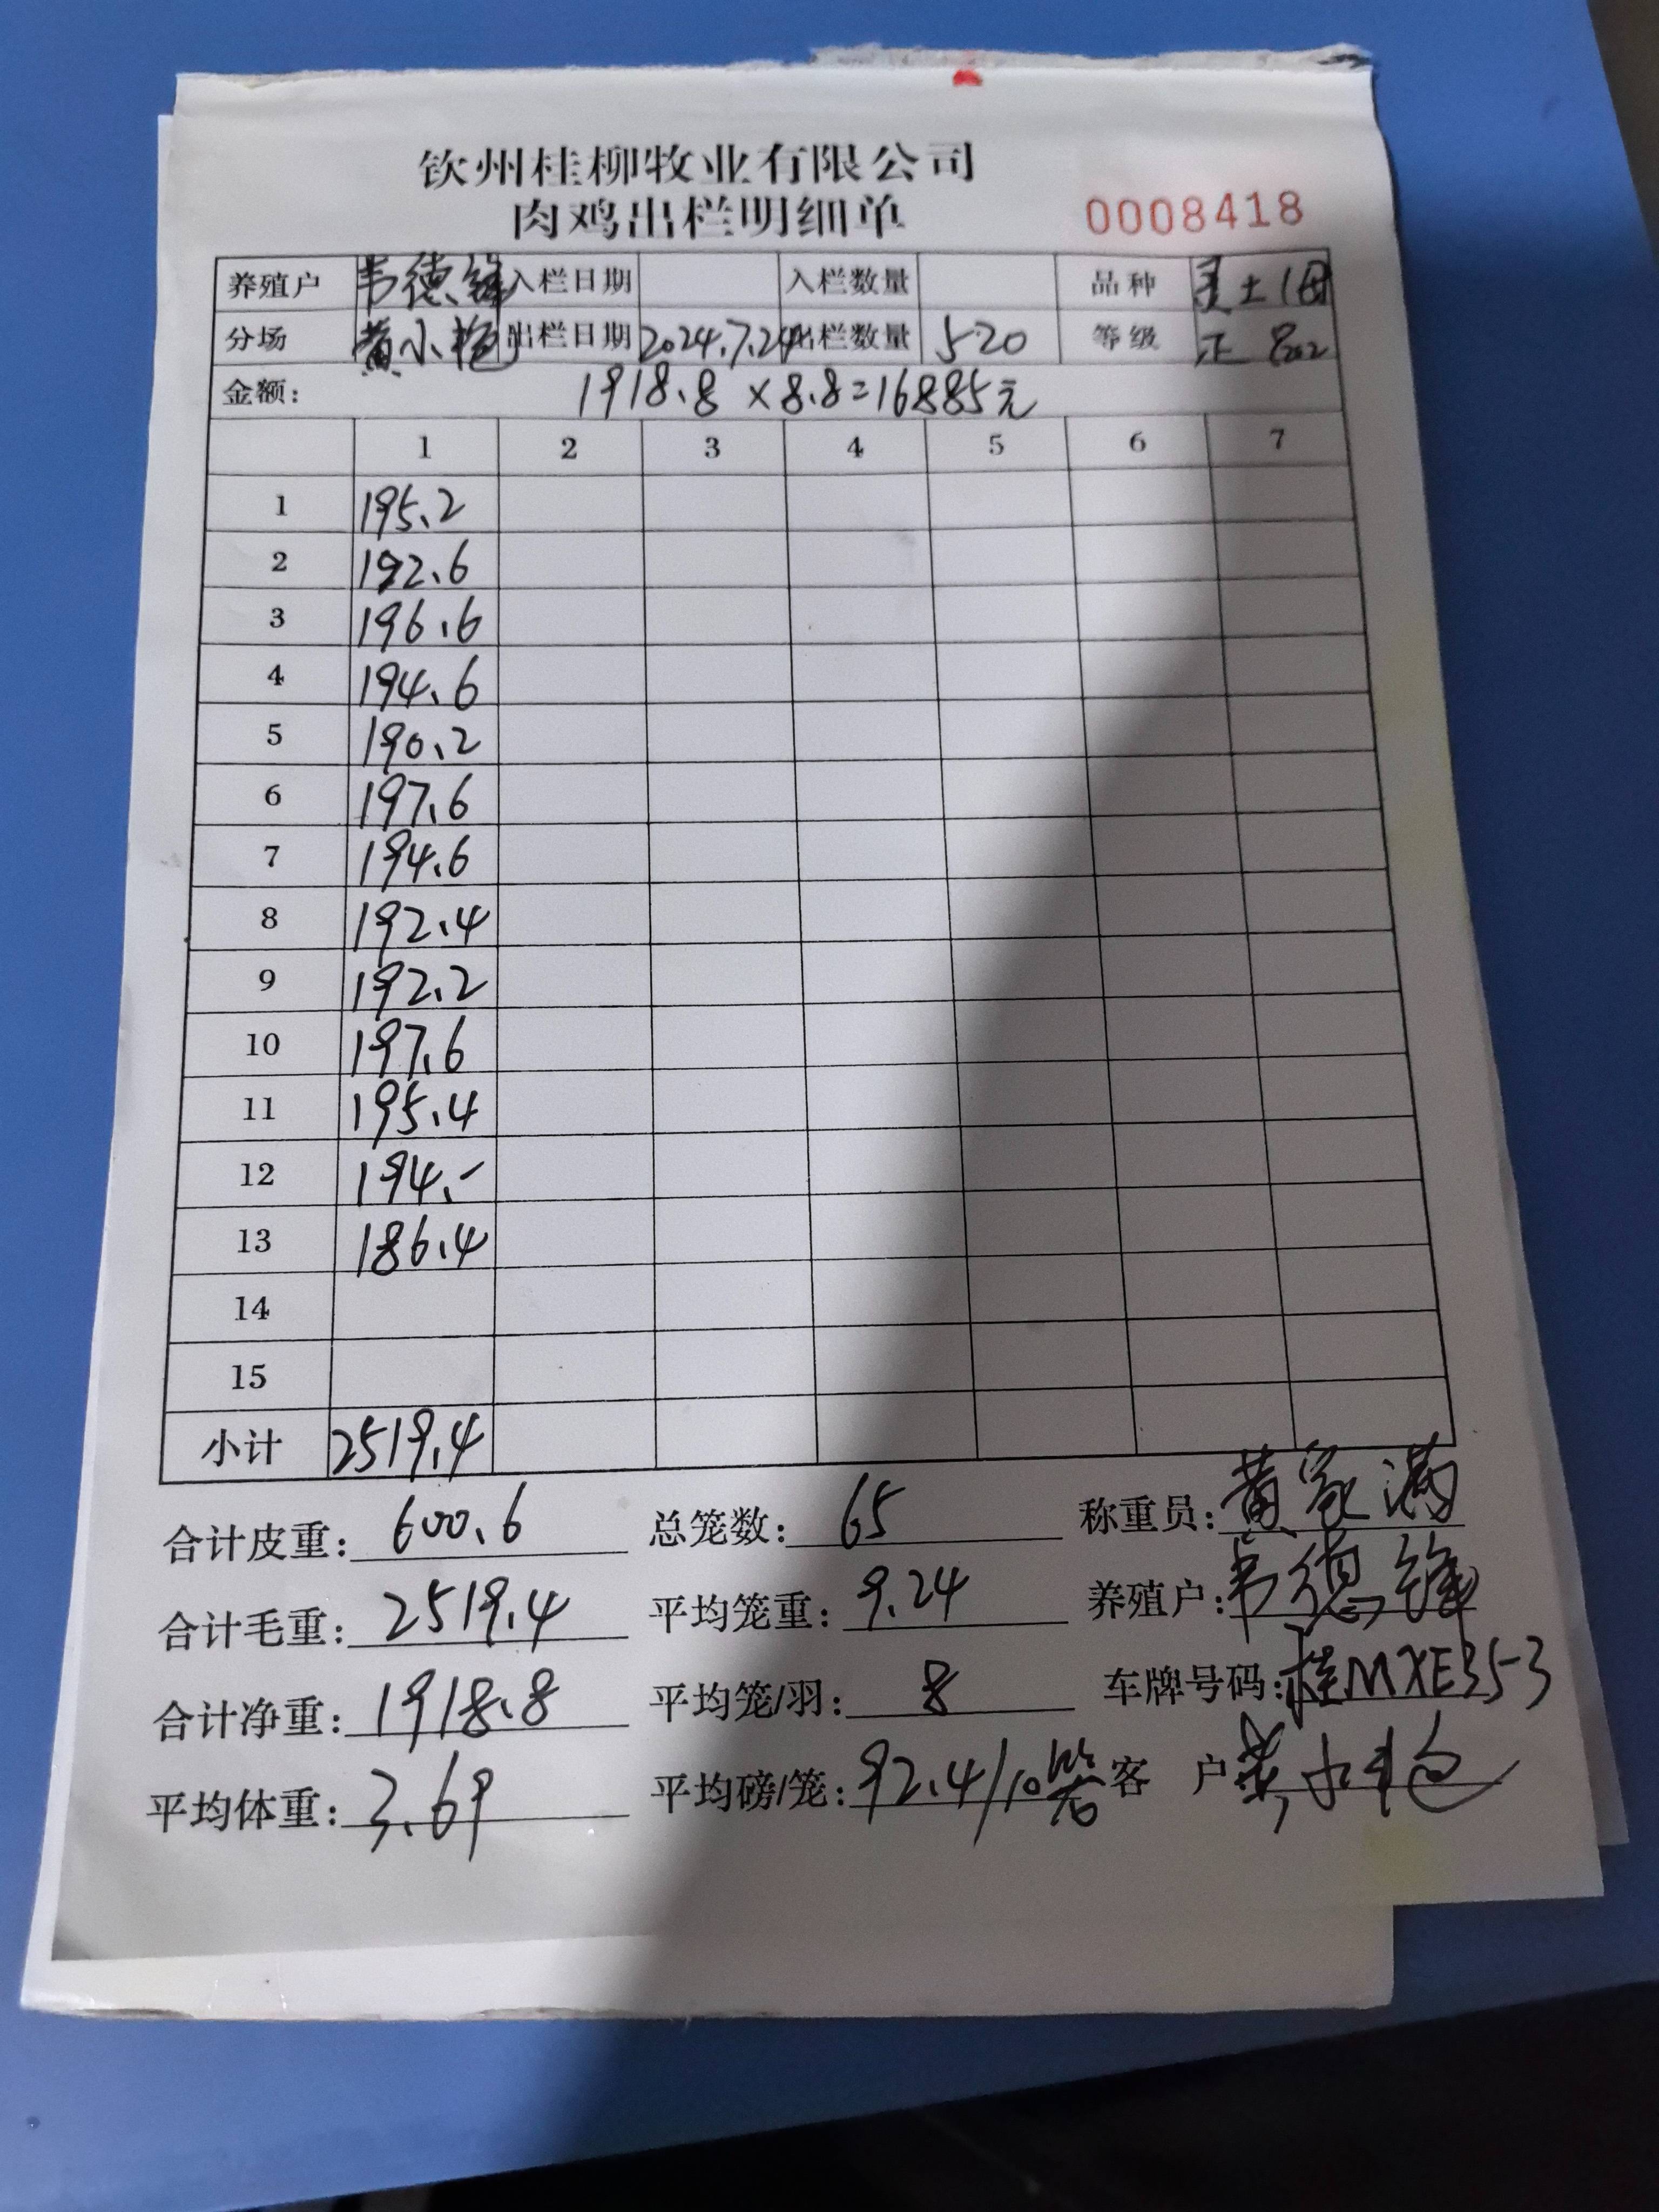 钦州桂柳牧业有限公司
肉鸡出栏明细单 0008418
养殖户 韦德锋 入栏日期 入栏数量 品种 灵土1母
分场 黄小艳 出栏日期 2024.7.24 出栏数量 520 等级 正
金额: 1918.8 ×8.8=16885元
1 2 3 4 5 6 7
1 195.2
2 192.6
3 196.6
4 194.6
5 190.2
6 197.6
7 194.6
8 192.4
9 192.2
10 197.6
11 195.4
12 194.-
13 186.4
14
15
小计 2519.4
合计皮重: 600.6 总笼数: 65 称重员: 黄家满
合计毛重: 2519.4 平均笼重: 9.24 养殖户: 韦德锋
合计净重: 1918.8 平均笼/羽: 8 车牌号码: 桂MXE353
平均体重: 3.69 平均磅/笼: 92.4/10 客 户